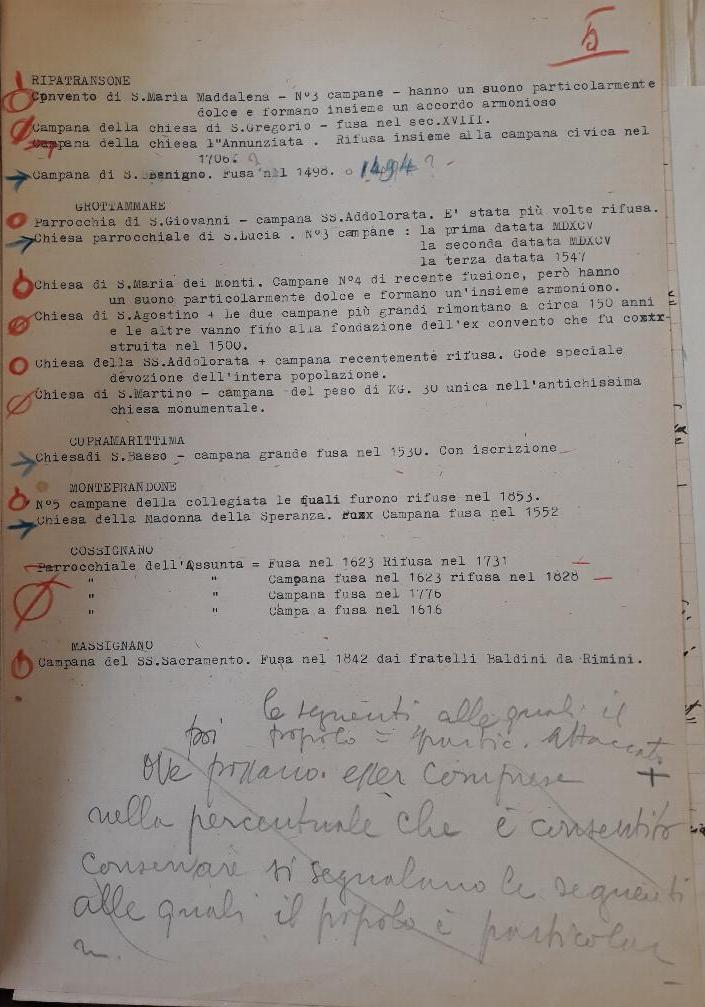 5
RIPATRANSONE
Convento di S.Maria Maddalena - N°3 campane - hanno un suono particolarmente
dolce e formano insieme un accordo armonioso
Campana della chiesa di S.Gregorio - fusa nel sec.XVIII.
Campana della chiesa l"Annunziata . Rifusa insieme alla campana civica nel
1706. ?
Campana di S. Benigno. Fusa nel 1498. o 1494 ? -
GROTTAMMARE
Parrocchia di S.Giovanni - campana SS.Addolorata. E' stata più volte rifusa.
Chiesa parrocchiale di S.Lucia . N°3 campane : la prima datata MDXCV
la seconda datata MDXCV
la terza datata 1547
Chiesa di S.Maria dei Monti. Campane N°4 di recente fusione, però hanno
un suono particolarmente dolce e formano un'insieme armoniono.
Chiesa di S.Agostino + Le due campane più grandi rimontano a circa 150 anni
e le altre vanno fino alla fondazione dell'ex convento che fu costr-
struita nel 1500.
Chiesa della SS.Addolorata + campana recentemente rifusa. Gode speciale
devozione dell'intera popolazione.
Chiesa di S.Martino - campana del peso di KG. 30 unica nell'antichissima
chiesa monumentale.
CUPRAMARITTIMA
Chiesadi S.Basso - campana grande fusa nel 1530. Con iscrizione
MONTEPRANDONE
N°5 campane della collegiata le quali furono rifuse nel 1853.
Chiesa della Madonna della Speranza. Campana fusa nel 1552
COSSIGNANO
Parrocchiale dell'Assunta = Fusa nel 1623 Rifusa nel 1731
" " Campana fusa nel 1623 rifusa nel 1828
" " Campana fusa nel 1776
" " Campa a fusa nel 1616
MASSIGNANO
Campana del SS.Sacramento. Fusa nel 1842 dai fratelli Baldini da Rimini.
le seguenti alle quali il
poi popolo = partic. attaccato
Ove possano esser comprese +
nella percentuale che è consentito
conservare si segnalano le seguenti
alle quali il popolo è particolar